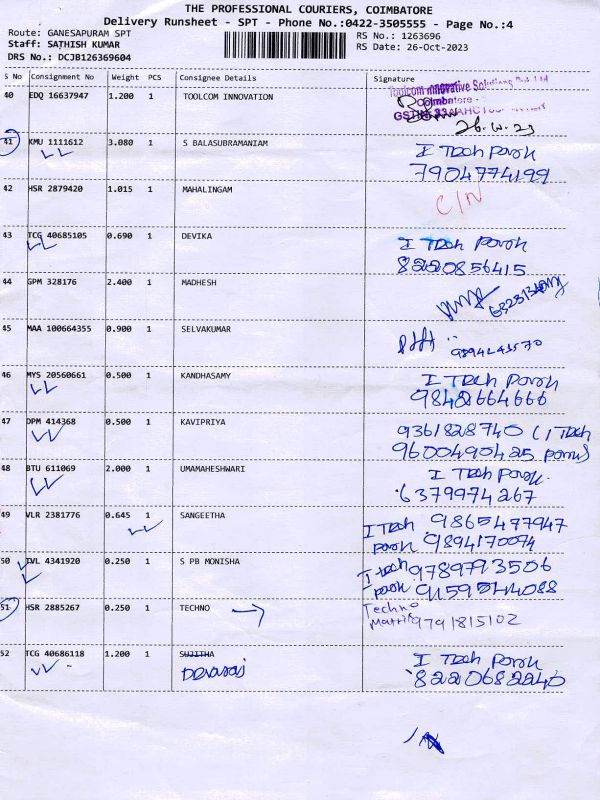 THE PROFESSIONAL COURIERS, COIMBATORE
Delivery Runsheet - SPT - Phone No.:0422-3505555 - Page No.:4
Route: GANESAPURAM SPT
Staff: SATHISH KUMAR
DRS No.: DCJB126369604
RS No.: 1263696
RS Date: 26-Oct-2023
S No Consignment No Weight PCS Consignee Details Signature
40 EDQ 16637947 1.200 1 TOOLCOM INNOVATION
Toolcom Innovative Solutions Pvt. Ltd
Coimbatore -
41 KMU 1111612 3.080 1 S BALASUBRAMANIAM I Tech Park
7904774199
42 HSR 2879420 1.015 1 MAHALINGAM C/N
43 TCG 40685105 0.690 1 DEVIKA I Tech Park
8220856415
44 GPM 328176 2.400 1 MADHESH
45 MAA 100664355 0.900 1 SELVAKUMAR
46 MYS 20560661 0.500 1 KANDHASAMY I Tech Park
9842664666
47 DPM 414368 0.500 1 KAVIPRIYA 9361828740 (I Tech
9600490425 Park)
48 BTU 611069 2.000 1 UMAMAHESHWARI I Tech Park
6379974267
49 VLR 2381776 0.645 1 SANGEETHA I Tech 9865477947
Park 9894170074
50 TVL 4341920 0.250 1 S PB MONISHA I tech 9789793506
Park
51 HSR 2885267 0.250 1 TECHNO Techno
Matrix 9791815102
52 TCG 40686118 1.200 1 SUJITHA I Tech Park
Devaraj 8220682240